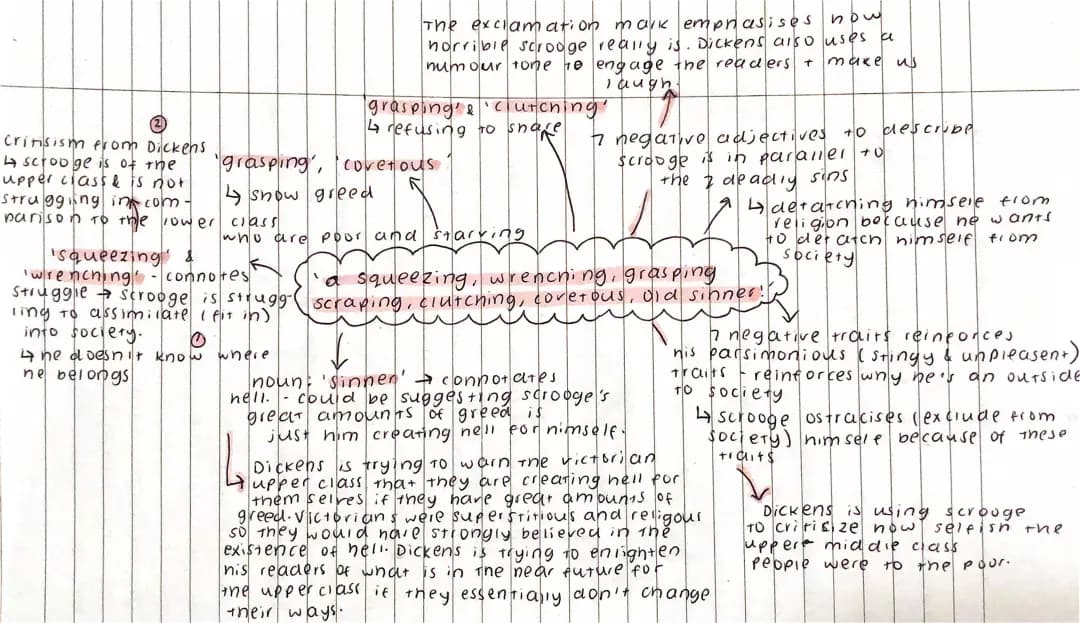 The exclamation mark emphasises how
horrible scrooge really is. Dickens also uses a
humour tone to engage the readers + make us
laugh.
grasping' & 'clutching'
↳ refusing to share
7 negative adjectives to describe
scrooge is in parallel to
the 7 deadly sins
↳ detatching himself from
religion because he wants
to detatch himself from
society
②
Critisism from Dickens
↳ scrooge is of the
upper class & is not
struggling in com-
parison to the lower class
who are poor and starving
'grasping', 'covetous'
↳ show greed
'squeezing' &
'wrenching' - connotes
struggle → scrooge is strugg-
ling to assimilate (fit in)
into society. ①
↳ he doesn't know where
he belongs
'a squeezing, wrenching, grasping
scraping, clutching, covetous, old sinner!'
noun: 'sinner' → connotates
hell. - could be suggesting scrooge's
great amounts of greed is
just him creating hell for himself.
↳ Dickens is trying to warn the victorian
upper class that they are creating hell for
themselves if they have great amounts of
greed. Victorians were superstitious and religous
so they would have strongly believed in the
existence of hell. Dickens is trying to enlighten
his readers of what is in the near future for
the upper class if they essentially don't change
their ways.
7 negative traits reinforces
his parsimonious (stingy & unpleasent)
traits - reinforces why he's an outside
to society
↳ scrooge ostracises (exclude from
society) himself because of these
traits
Dickens is using scrooge
to critisize how selfish the
upper middle class
people were to the poor.